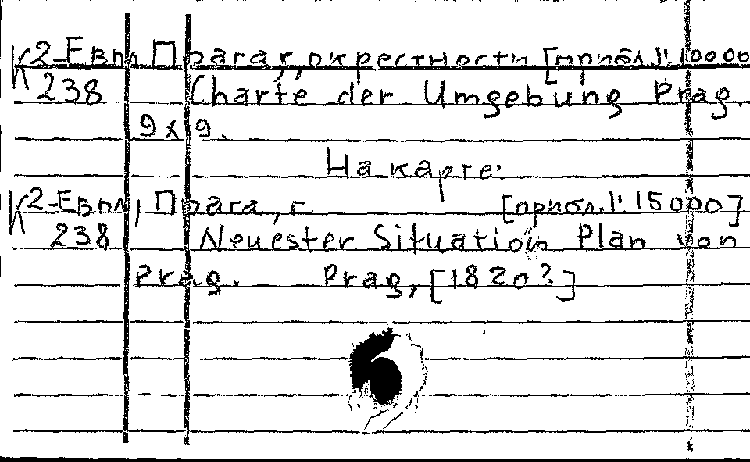 К2-Евпл Прага, г, окрестности [прибл.1:10000
238 Charte der Umgebung Prag.
9x9.
На карте:
К2-Евпл, Прага, г. [прибл.1:15000]
238 Neuester Situation Plan von
Prag. Prag, [1820?]